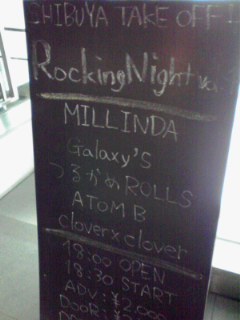 SHIBUYA TAKE OFF
Rocking Night
MILLINDA
Galaxy'S
つるかめROLLS
ATOM B
cloverxclover
18:00 OPEN
18:30 START
ADV: ¥2,000
DOOR: